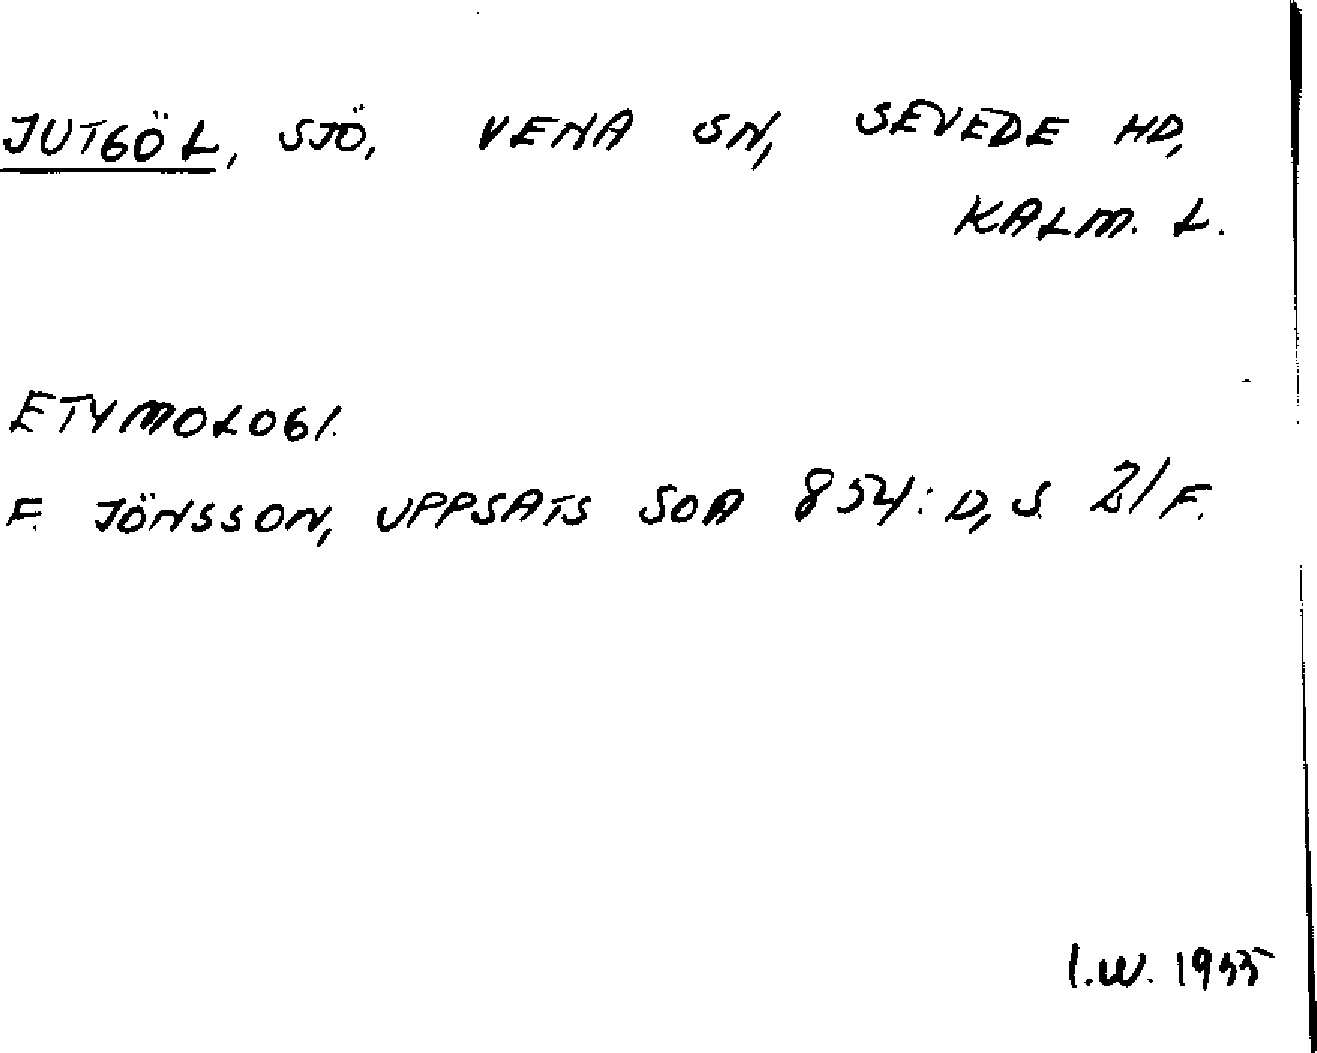 JUTGÖL, SJÖ, VENA SN, SEVEDE HD,
KALM. L.
ETYMOLOGI.
F. JÖNSSON, UPPSATS SOA 854:D, S. 21 F.
I.W. 1955